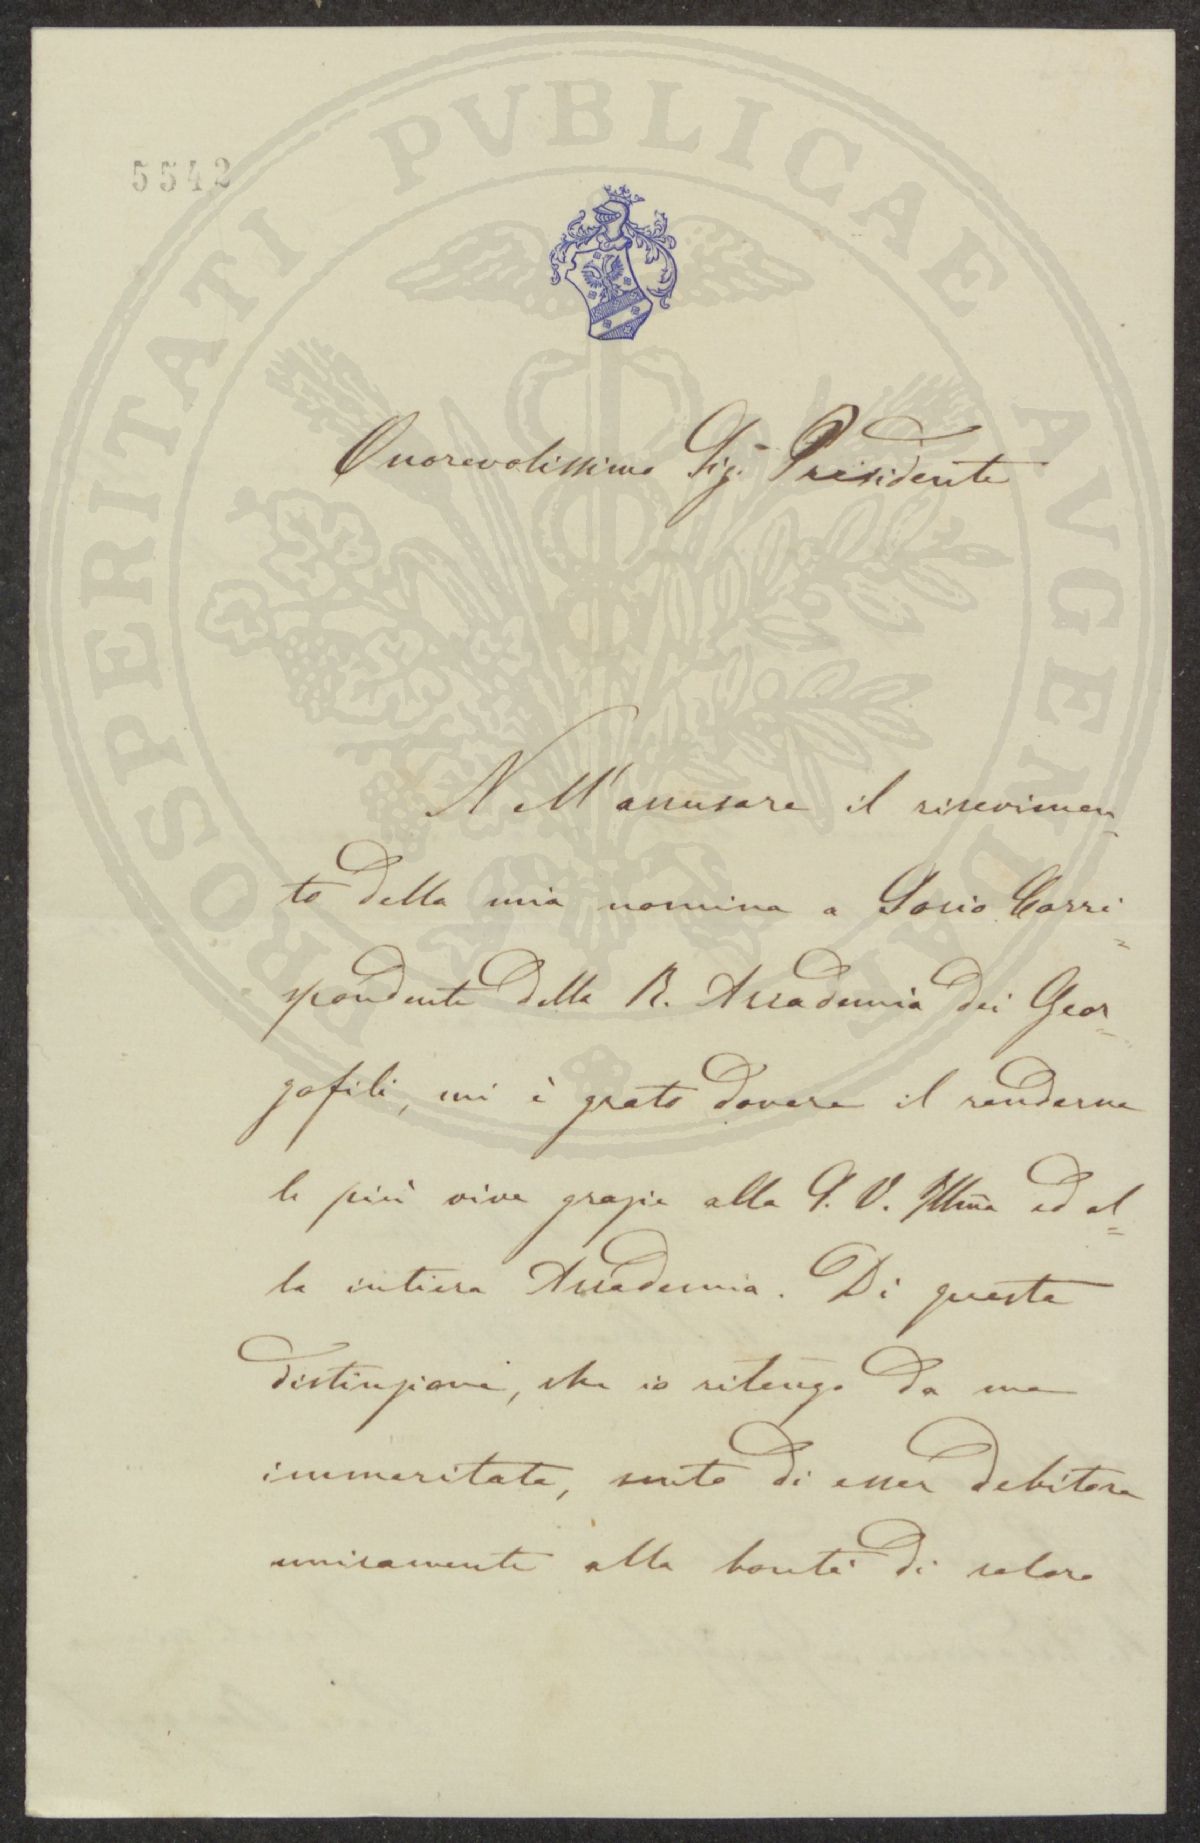 PROSPERITATI PVBLICAE AVGENDAE
5542
Onorevolissimo Sig.r Presidente
Nell'accusare il ricevimen-
to della mia nomina a Socio Corri=
spondente della R. Accademia dei Geor=
gofili, mi è grato dovere il renderne
le più vive grazie alla S. V. Illma ed al=
la intiera Accademia. Di questa
distinzione, che io ritengo da me
immeritata, sento di esser debitore
unicamente alla bontà di coloro